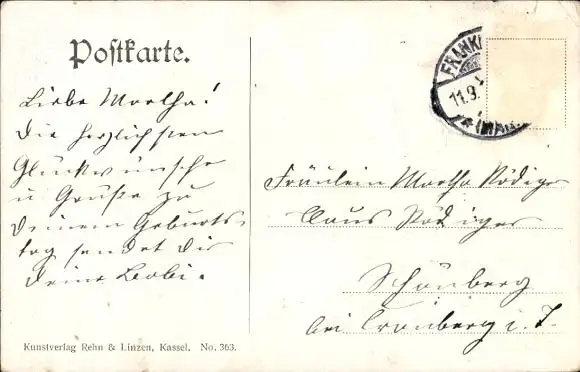 Postkarte.
Liebe Martha!
Die herzlichsten
Glückwünsche
u Grüße zu
Deinem Geburts-
tag sendet Dir
Deine Bobi.
FRANKF
11.9.
(MAIN)
Fräulein Martha Rödiger
Claus Rödiger
Schönberg
bei Cronberg i. T.
Kunstverlag Rehn & Linzen, Kassel. No. 363.